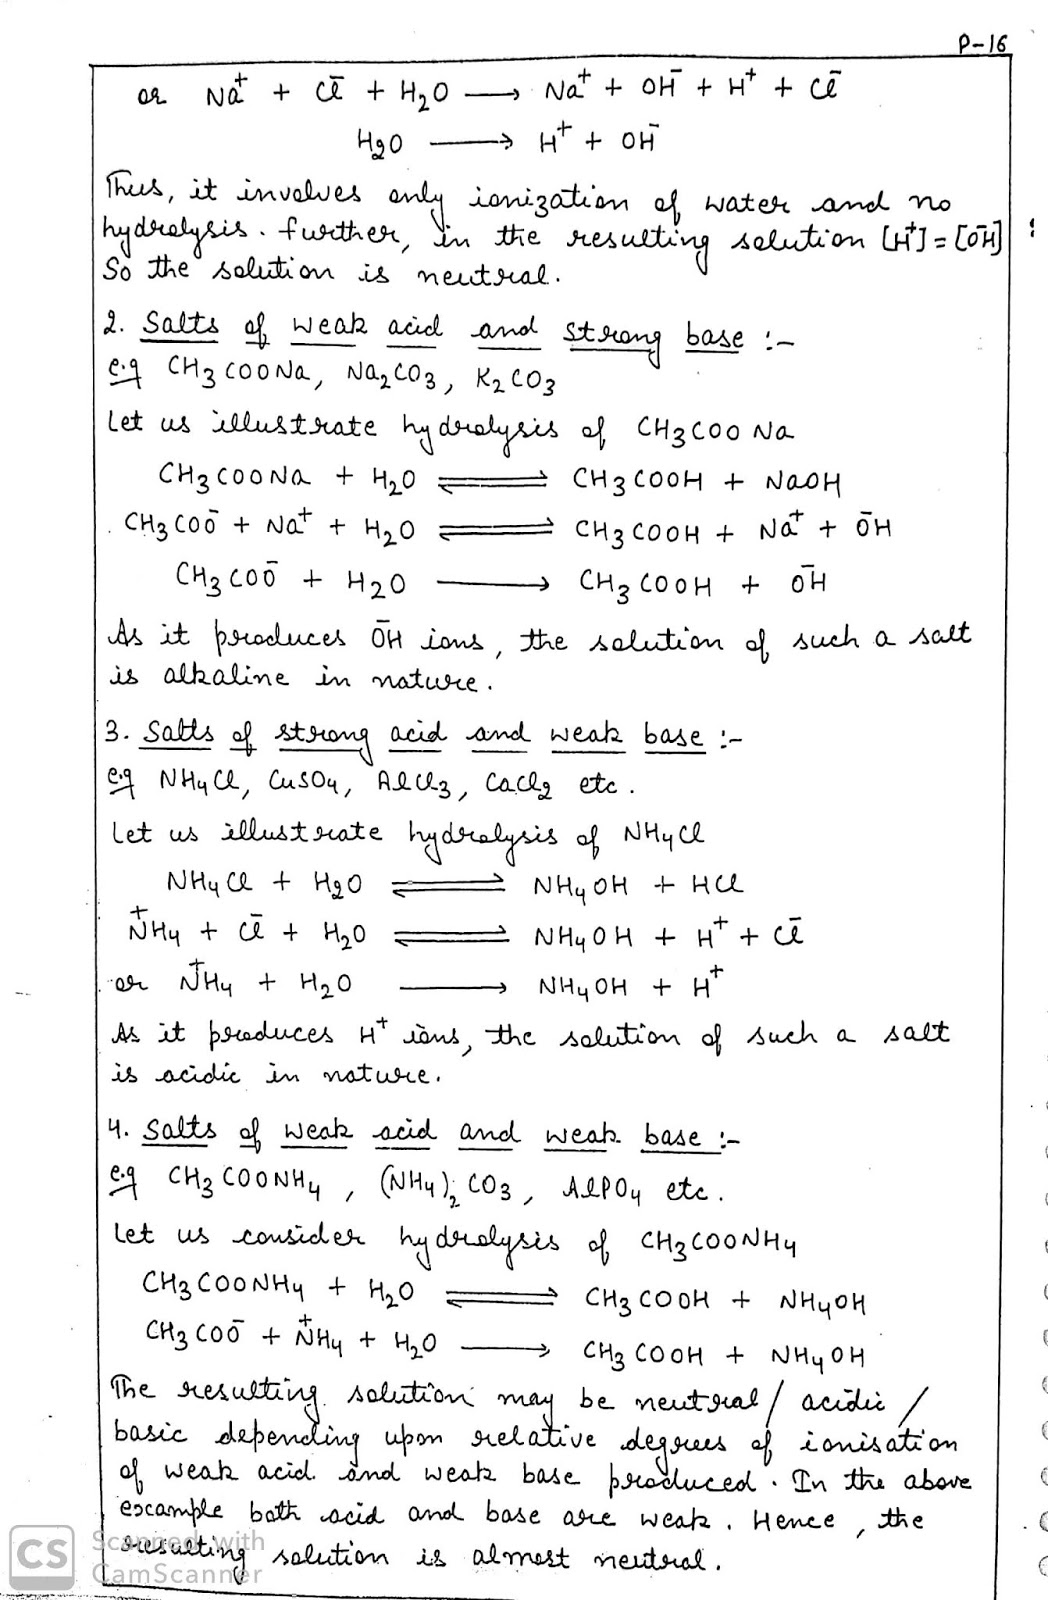 P-16
or Na⁺ + Cl⁻ + H₂O ⟶ Na⁺ + OH⁻ + H⁺ + Cl⁻
H₂O ⟶ H⁺ + OH⁻
Thus, it involves only ionization of water and no
hydrolysis. further, in the resulting solution [H⁺] = [OH⁻]
So the solution is neutral.
2. Salts of weak acid and strong base :-
e.g CH₃COONa, Na₂CO₃, K₂CO₃
Let us illustrate hydrolysis of CH₃COONa
CH₃COONa + H₂O ⇌ CH₃COOH + NaOH
CH₃COO⁻ + Na⁺ + H₂O ⇌ CH₃COOH + Na⁺ + OH⁻
CH₃COO⁻ + H₂O ⟶ CH₃COOH + OH⁻
As it produces OH⁻ ions, the solution of such a salt
is alkaline in nature.
3. Salts of strong acid and weak base :-
e.g NH₄Cl, CuSO₄, AlCl₃, CaCl₂ etc.
Let us illustrate hydrolysis of NH₄Cl
NH₄Cl + H₂O ⇌ NH₄OH + HCl
NH₄⁺ + Cl⁻ + H₂O ⇌ NH₄OH + H⁺ + Cl⁻
or NH₄⁺ + H₂O ⟶ NH₄OH + H⁺
As it produces H⁺ ions, the solution of such a salt
is acidic in nature.
4. Salts of weak acid and weak base :-
e.g CH₃COONH₄, (NH₄)₂CO₃, AlPO₄ etc.
Let us consider hydrolysis of CH₃COONH₄
CH₃COONH₄ + H₂O ⇌ CH₃COOH + NH₄OH
CH₃COO⁻ + NH₄⁺ + H₂O ⟶ CH₃COOH + NH₄OH
The resulting solution may be neutral / acidic /
basic depending upon relative degrees of ionisation
of weak acid and weak base produced. In the above
example both acid and base are weak. Hence, the
resulting solution is almost neutral.
CS Scanned with
CamScanner